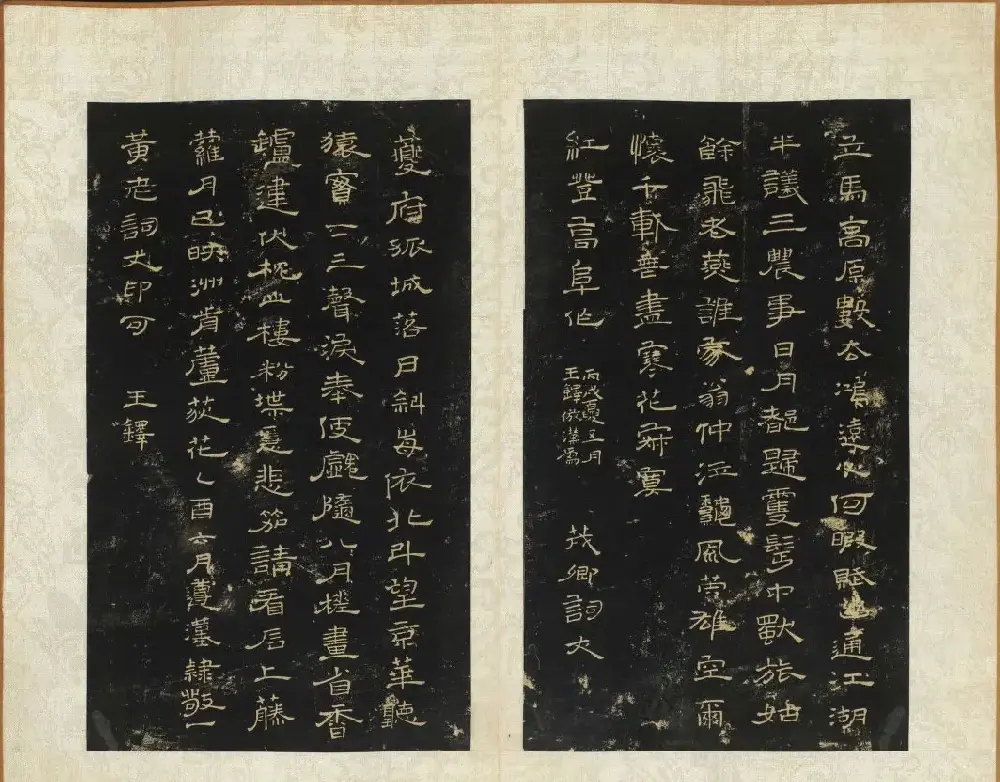 立馬高原數去鴻遠心何暇賦逋江湖
半議三農事日月都歸隻髩中獸旅姑
餘飛老燕誰家翁仲泣龜風常雄空爾
懷千載無盡寒花舜冥
紅登高阜作 丙戌夏五月
王鐸倣漢篇
茂卿詞丈
夔府孤城落日斜每依北斗望京華聽
猿實下三聲淚奉使虛隨八月槎畫省香
鑪違伏枕山樓粉堞隱悲笳請看石上藤
蘿月已映洲前蘆荻花乙酉六月夔漢隸敬一
黃老詞丈印可 王鐸